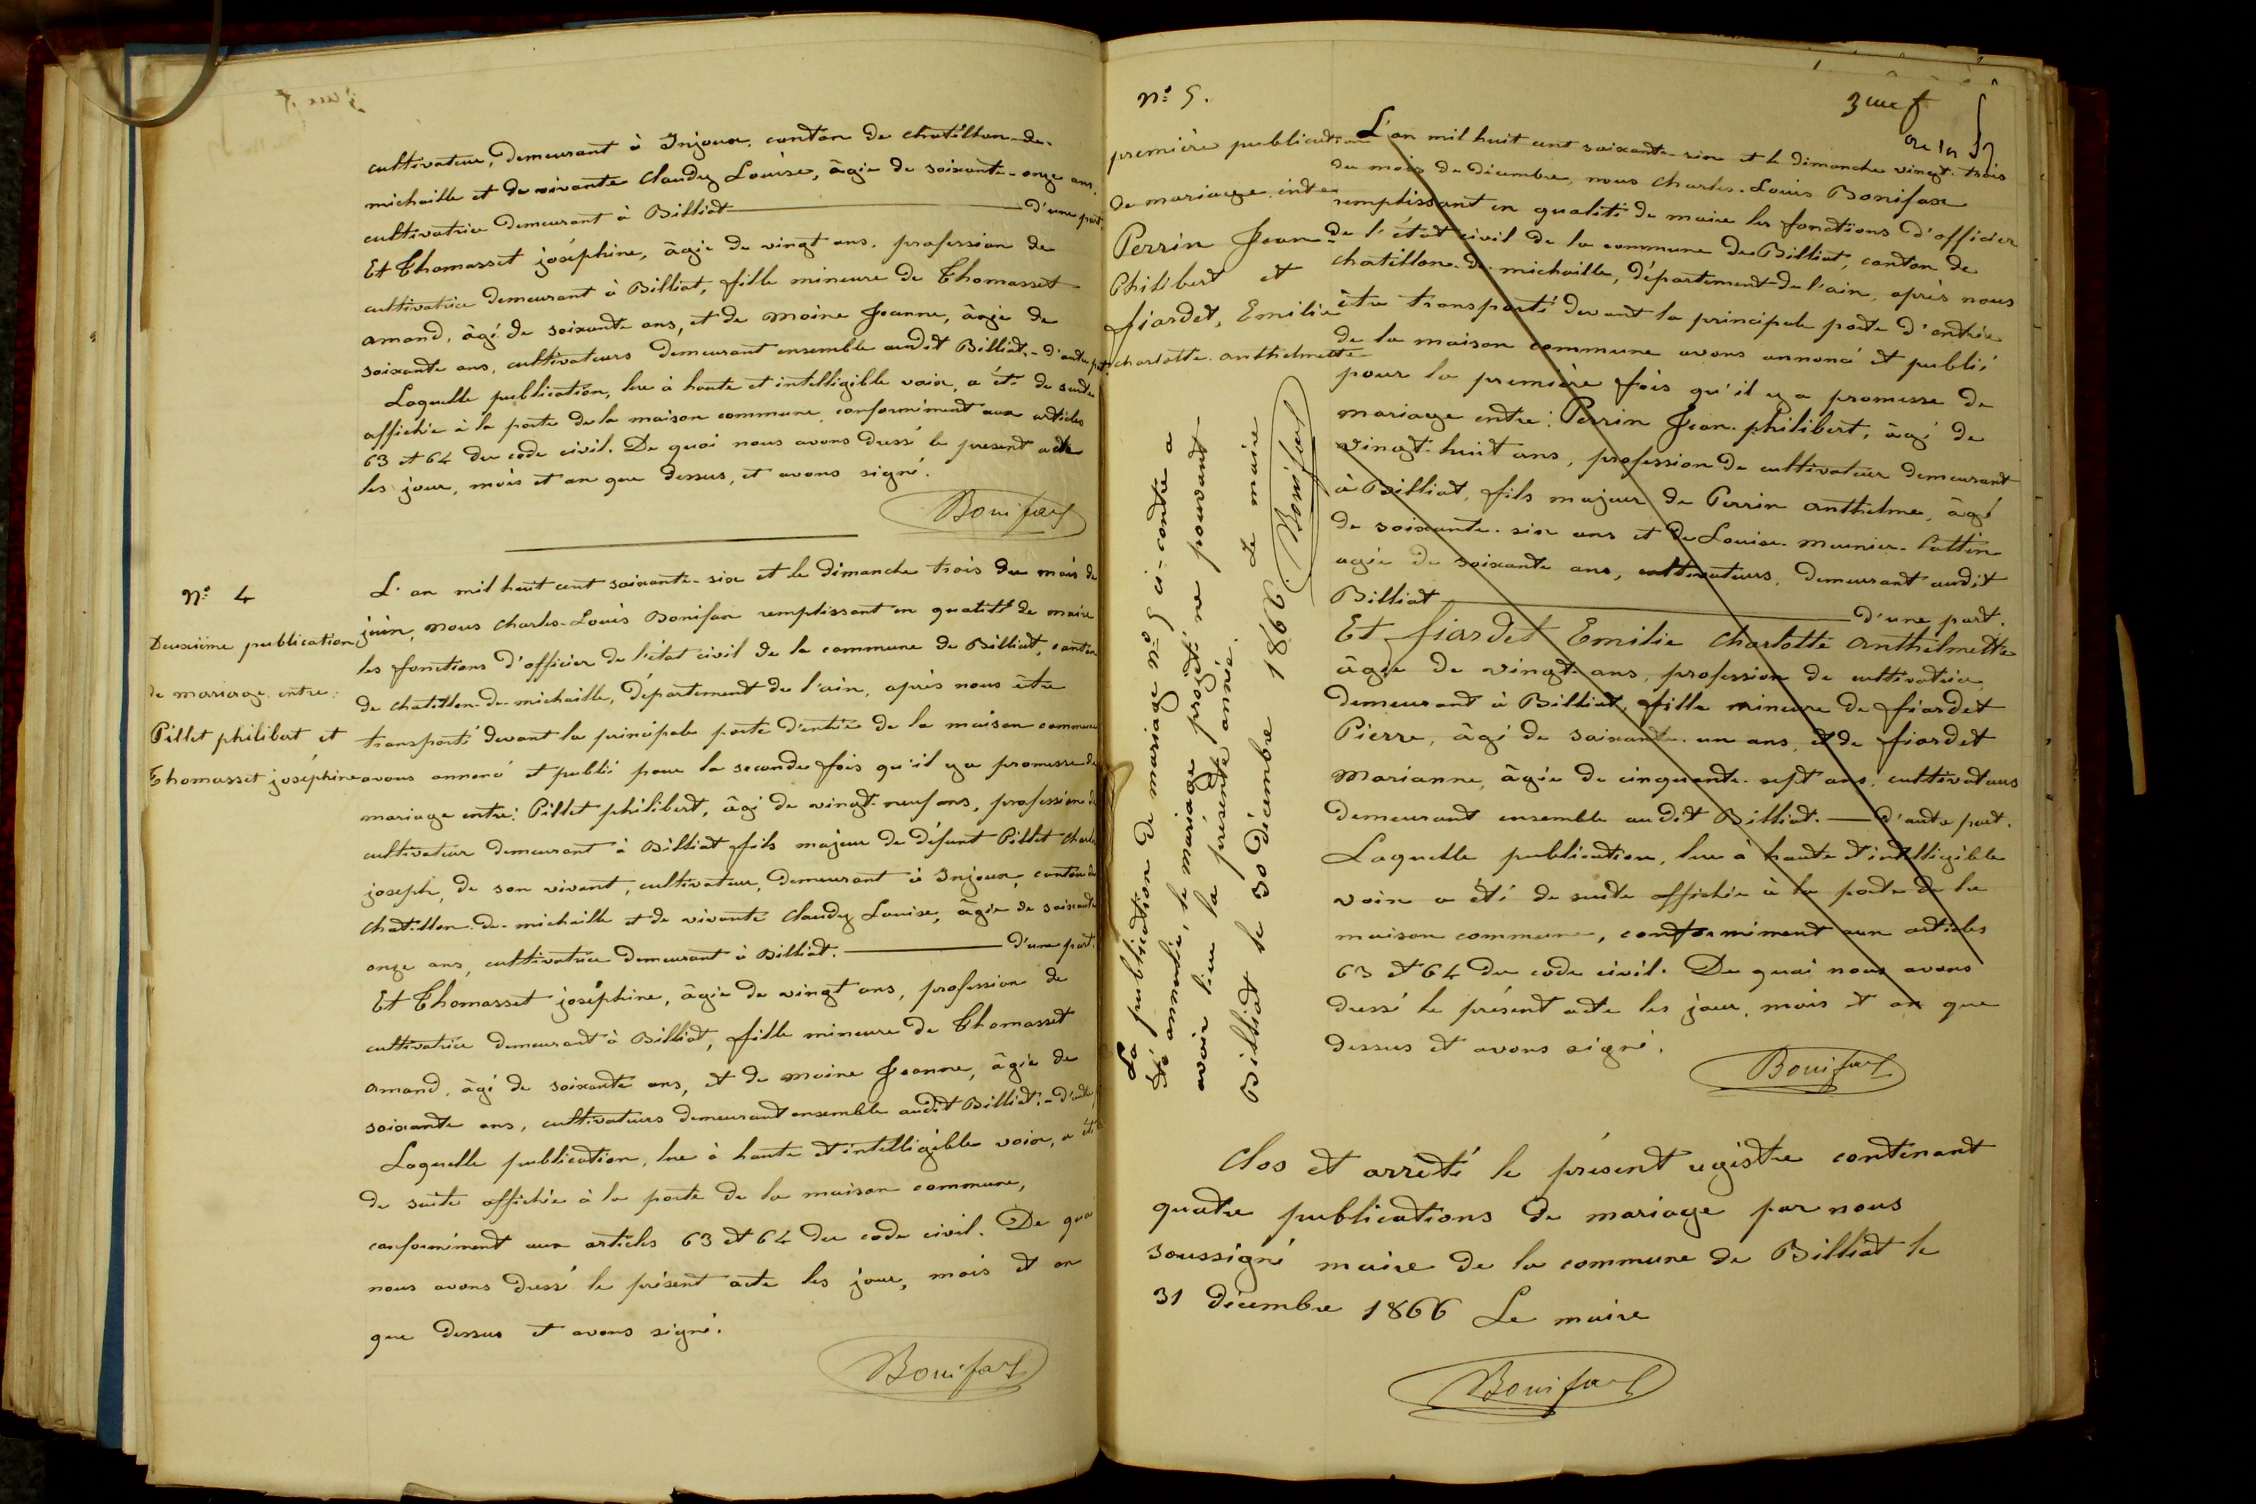 cultivateur, demeurant à Injoux, canton de chatillon-de-
michaille et de vivante Claudy Louise, âgée de soixante-onze ans,
cultivatrice demeurant à Billiat d'une part.
Et Thomasset joséphine, âgée de vingt ans, profession de
cultivatrice demeurant à Billiat, fille mineure de Thomasset
amand, âgé de soixante ans, et de moine Jeanne, âgée de
soixante ans, cultivateurs demeurant ensemble audit Billiat. - d'autre part
Laquelle publication, lue à haute et intelligible voix, a été de suite
affichée à la porte de la maison commune, conformément aux articles
63 et 64 du code civil. De quoi nous avons dressé le present acte
les jour, mois et an que dessus, et avons signé.
Bonifax
N° 4
Deuxième publication
de mariage entre:
Pillet philibert et
Thomasset joséphine
L'an mil huit cent soixante-six et le dimanche trois du mois de
juin, nous Charles-Louis Bonifax remplissant en qualité de maire
les fonctions d'officier de l'état civil de la commune de Billiat, canton
de chatillon-de-michaille, département de l'ain, après nous être
transporté devant la principale porte d'entrée de la maison commune
avons annoncé et publié pour la seconde fois qu'il y a promesse de
mariage entre: Pillet philibert, âgé de vingt-neuf ans, profession de
cultivateur demeurant à Billiat fils majeur de défunt Pillet Charles
joseph, de son vivant, cultivateur, demeurant à Injoux, canton de
Chatillon-de-michaille et de vivante Claudy Louise, âgée de soixante
onze ans, cultivatrice demeurant à Billiat. d'une part.
Et Thomasset joséphine, âgée de vingt ans, profession de
cultivatrice demeurant à Billiat, fille mineure de Thomasset
amand, âgé de soixante ans, et de moine Jeanne, âgée de
soixante ans, cultivateurs demeurant ensemble audit Billiat. - d'autre
Laquelle publication, lue à haute et intelligible voix, a été
de suite affichée à la porte de la maison commune,
conformément aux articles 63 et 64 du code civil. De quoi
nous avons dressé le présent acte les jour, mois et an
que dessus et avons signé.
Bonifax
3me f
N° 5.
première publication
de mariage entre
Perrin Jean-
Philibert et
fiardet, Emilie
charlotte anthelmette
L'an mil huit cent soixante-six et le dimanche vingt-trois
du mois de décembre, nous Charles-Louis Bonifax
remplissant en qualité de maire les fonctions d'officier
de l'état civil de la commune de Billiat, canton de
chatillon-de-michaille, département de l'ain, après nous
être transporté devant la principale porte d'entrée
de la maison commune avons annoncé et publié
pour la première fois qu'il y a promesse de
mariage entre: Perrin Jean-philibert, âgé de
vingt-huit ans, profession de cultivateur demeurant
à Billiat, fils majeur de Perrin anthelme, âgé
de soixante-six ans et de Louise meunier-Cattin
agée de soixante ans, cultivateurs, demeurant audit
Billiat d'une part.
Et fiardet Emilie Charlotte anthelmette
âgée de vingt ans, profession de cultivatrice,
demeurant à Billiat, fille mineure de fiardet
Pierre, âgé de soixante-un ans, et de fiardet
Marianne, âgée de cinquante-sept ans, cultivateurs
demeurant ensemble audit Billiat. d'autre part.
Laquelle publication, lue à haute et intelligible
voix a été de suite affichée à la porte de la
maison commune, conformément aux articles
63 et 64 du code civil. De quoi nous avons
dressé le présent acte les jour, mois et an que
dessus et avons signé.
Bonifax
La publication de mariage n° 5 ci-contre a
été annulée, le mariage projeté, ne pouvant
avoir lieu la présente année.
Billiat le 30 décembre 1866. Le maire
Bonifax
Clos et arrêté le présent registre contenant
quatre publications de mariage par nous
soussigné maire de la commune de Billiat le
31 décembre 1866 Le maire
Bonifax